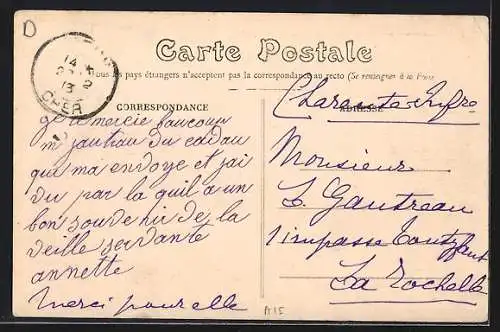 D
14
13
CHER
Carte Postale
Tous les pays étrangers n'acceptent pas la correspondance au recto (Se renseigner à la Poste
CORRESPONDANCE
ADRESSE
ge remercie baucoup
mr jautiau du cadau
que ma envoye et jai
du par la quil a un
bon souve nir de la
veille servante
annette
merci pour elle
Charente Infre
Monsieur
L. Gautreau
1 impasse
La Rochelle
A15